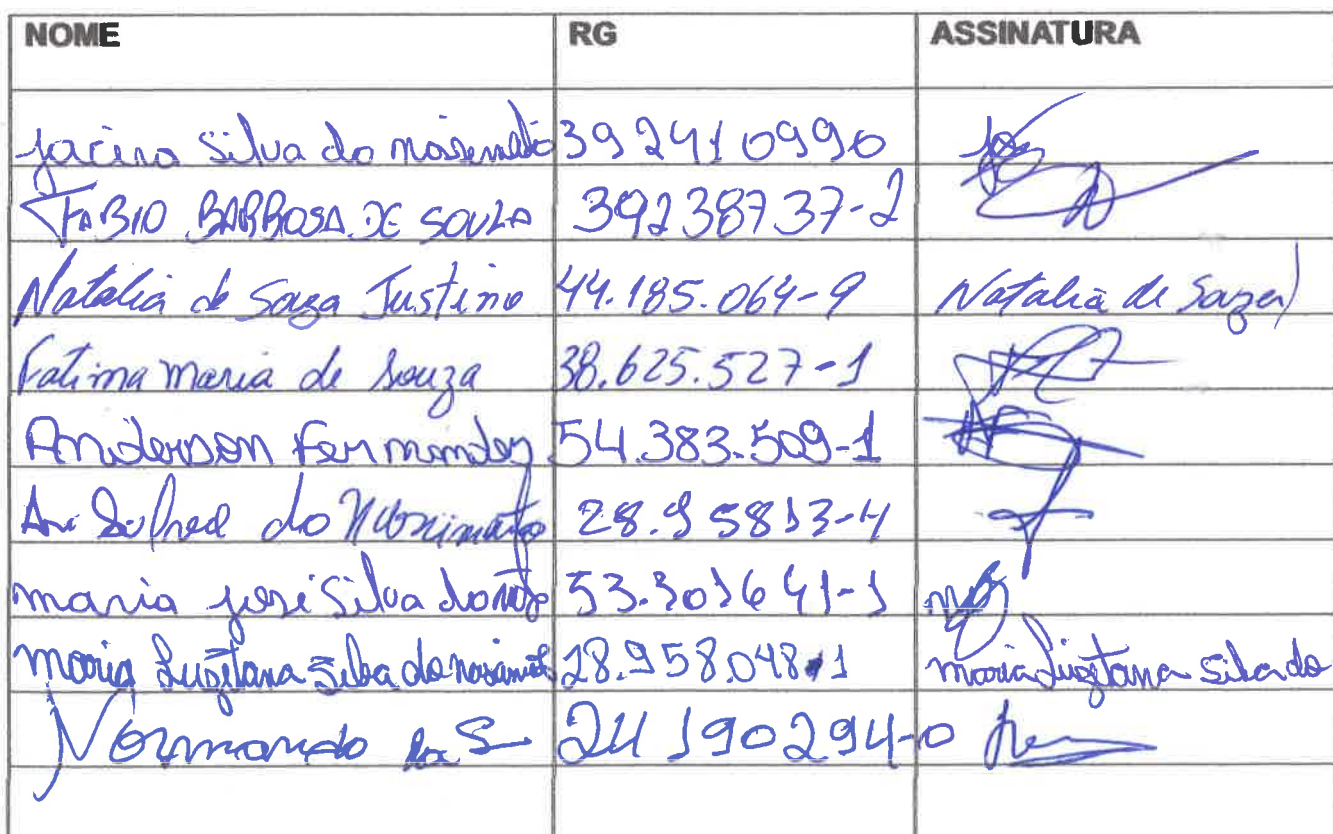 NOME RG ASSINATURA
Jacira Silva do 392410990
FABIO BARBOSA DE SOUZA 39238737-2
Natalia de Souza Justino 44.185.064-9 Natalia de Souza
Fatima Maria de Souza 38.625.527-1
Anderson Fernandez 54.383.509-1
do 28.95813-4
maria josé Silva do 53.301641-1
maria Luzitana Silva do 28.958.048-1 maria Luzitana Silva do
Normando S 24190294-0